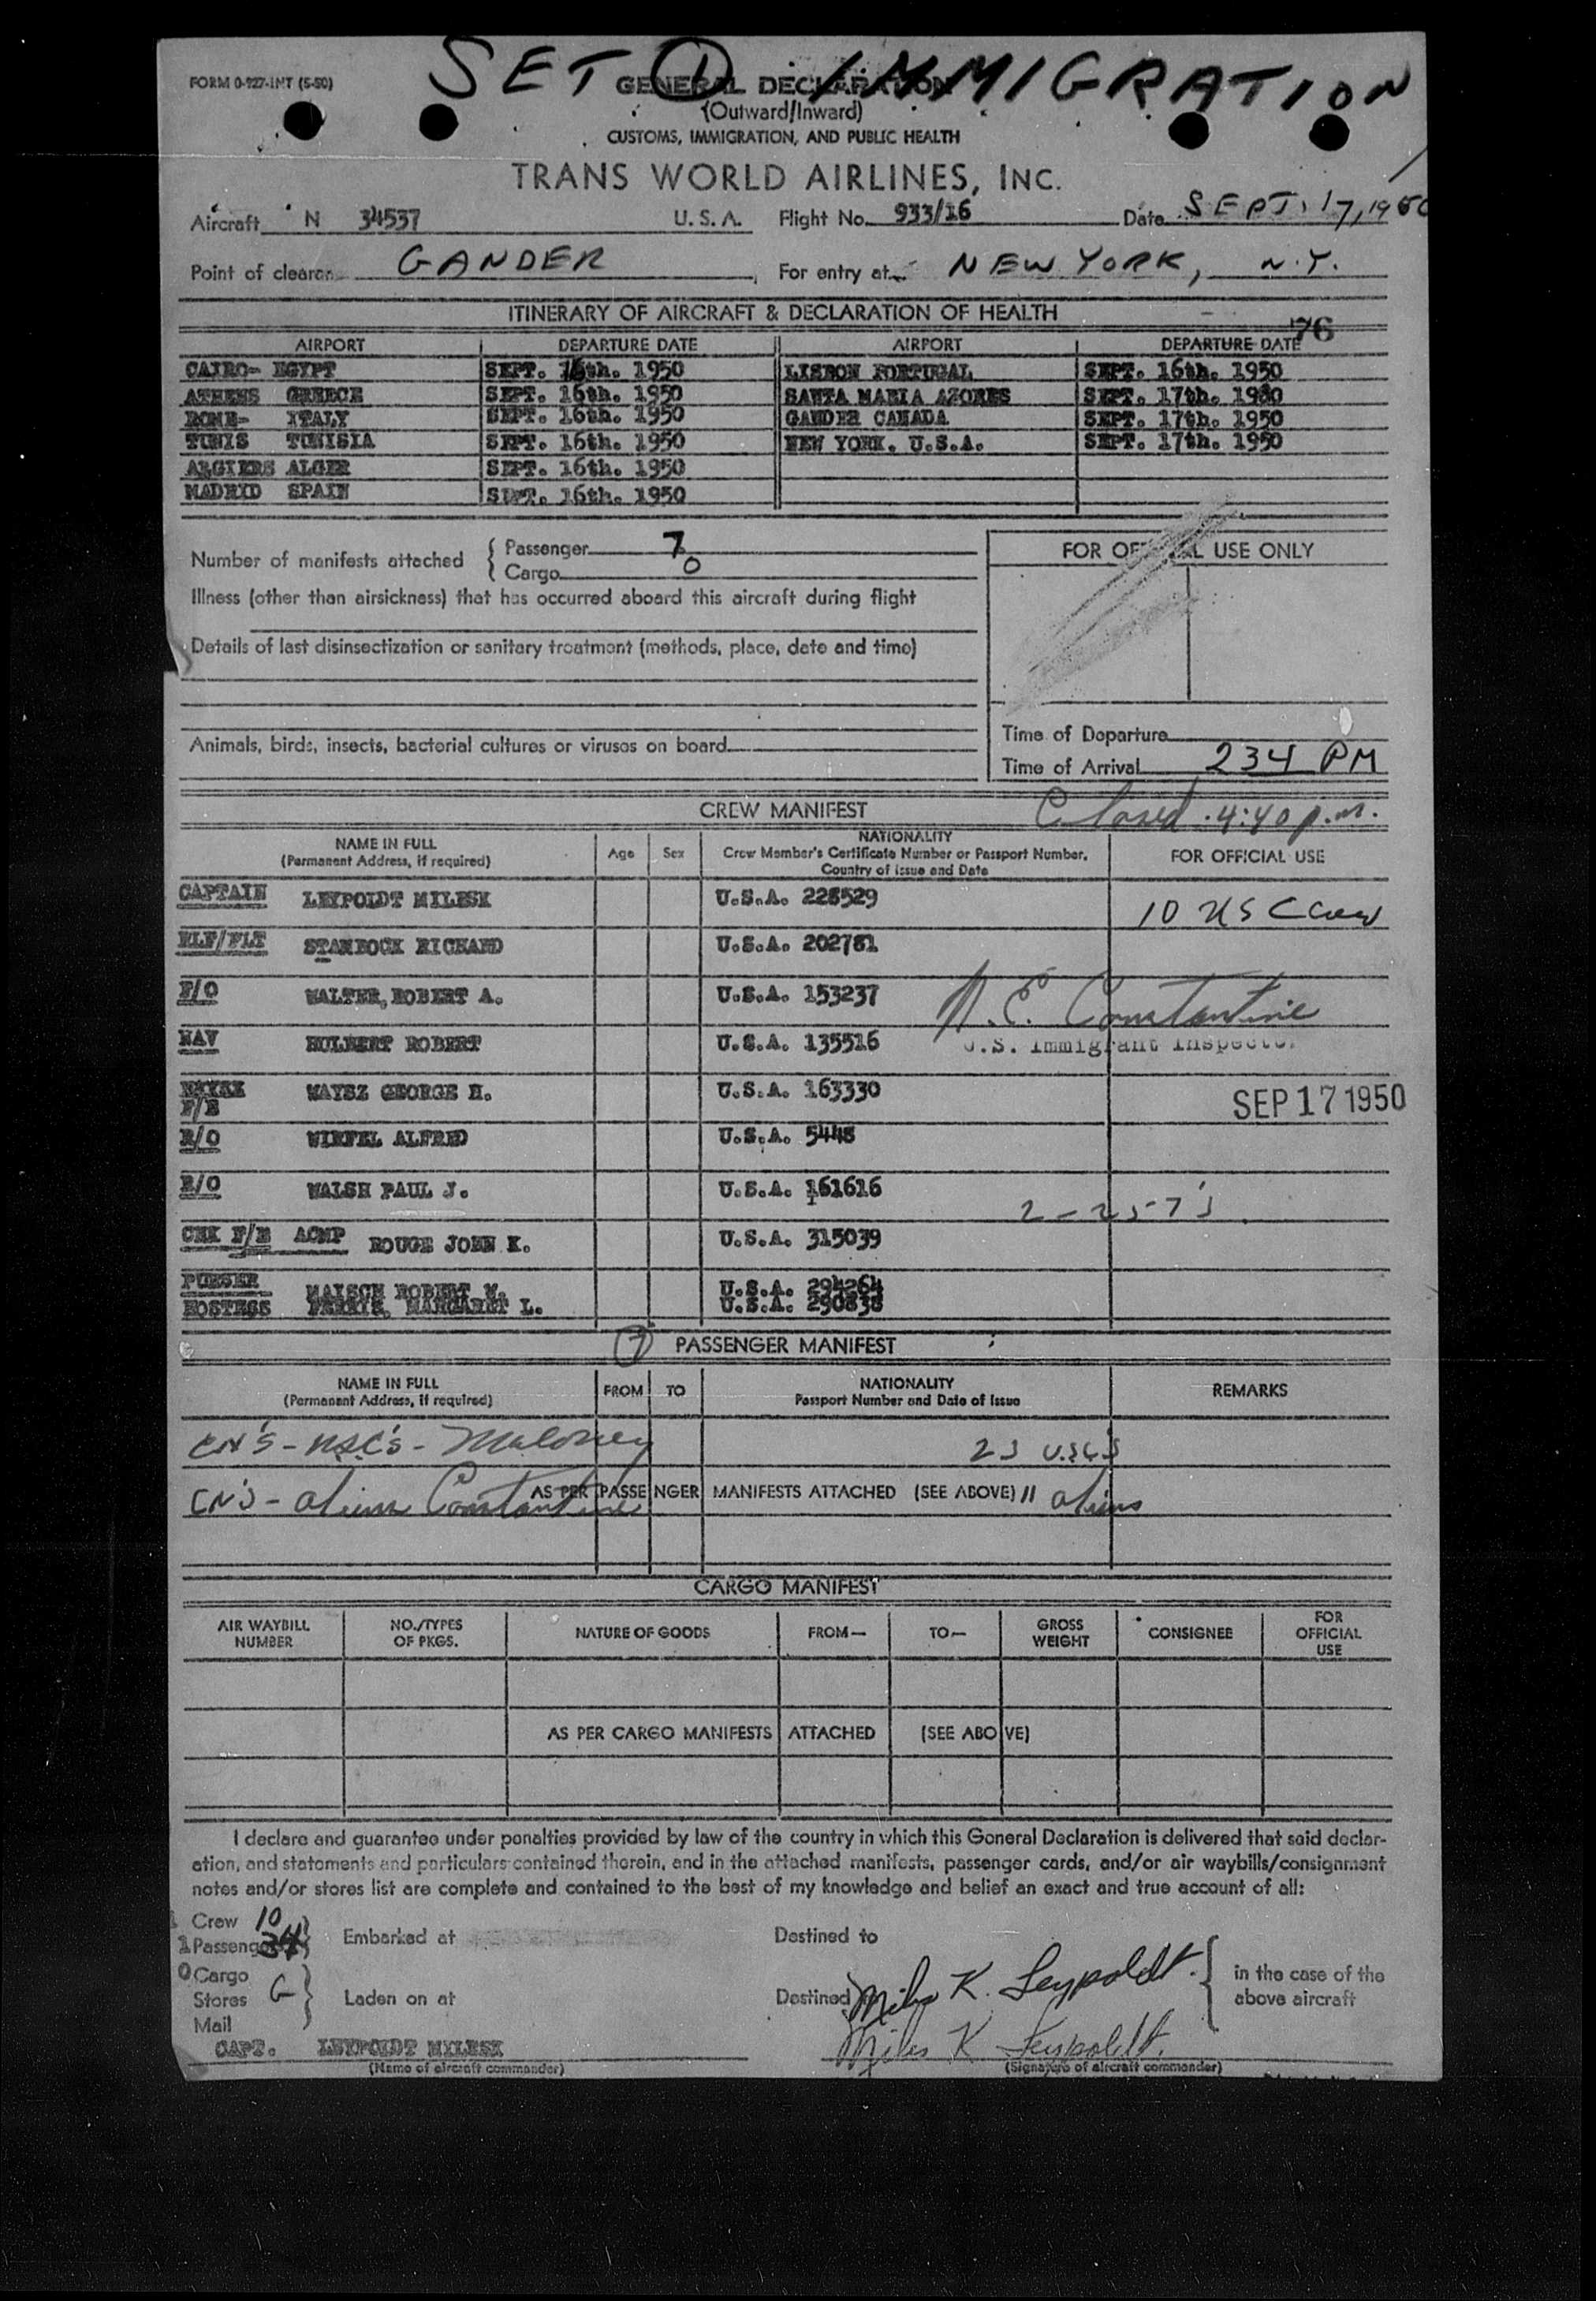 SET 1 IMMIGRATION
FORM 0-927-INT (5-50)
GENERAL DECLARATION
(Outward/Inward)
CUSTOMS, IMMIGRATION, AND PUBLIC HEALTH
TRANS WORLD AIRLINES, INC.
Aircraft N 34537 U.S.A. Flight No. 933/16 Date SEPT. 17, 1950
Point of clearance GANDER, For entry at NEW YORK, N.Y.
ITINERARY OF AIRCRAFT & DECLARATION OF HEALTH
76
AIRPORT DEPARTURE DATE AIRPORT DEPARTURE DATE
CAIRO- EGYPT SEPT. 16th. 1950 LISBON PORTUGAL SEPT. 16th. 1950
ATHENS GREECE SEPT. 16th. 1950 SANTA MARIA AZORES SEPT. 17th. 1950
ROME- ITALY SEPT. 16th. 1950 GANDER CANADA SEPT. 17th. 1950
TUNIS TUNISIA SEPT. 16th. 1950 NEW YORK. U.S.A. SEPT. 17th. 1950
ALGIERS ALGER SEPT. 16th. 1950
MADRID SPAIN SEPT. 16th. 1950
Number of manifests attached { Passenger 7
Cargo 0
FOR OFFICIAL USE ONLY
Illness (other than airsickness) that has occurred aboard this aircraft during flight
Details of last disinsectization or sanitary treatment (methods, place, date and time)
Animals, birds, insects, bacterial cultures or viruses on board
Time of Departure
Time of Arrival 234 PM
CREW MANIFEST Closed 4:40 p.m.
NAME IN FULL (Permanent Address, if required) Age Sex NATIONALITY Crew Member's Certificate Number or Passport Number, Country of Issue and Date FOR OFFICIAL USE
CAPTAIN LEYPOLDT MILESK U.S.A. 228529 10 US C Crew
RLF/FLT STARBOCK RICHARD U.S.A. 202781
F/O WALTER, ROBERT A. U.S.A. 153237 N. E. Constantine
NAV HULBERT ROBERT U.S.A. 135516 U.S. Immigrant Inspector
F/E WAYSZ GEORGE H. U.S.A. 163330 SEP 17 1950
R/O WIEFEL ALFRED U.S.A. 5448
R/O WALSH PAUL J. U.S.A. 161616 2-257's
CHK F/E ACMP ROUGE JOHN K. U.S.A. 315039
PURSER MAISCH ROBERT M. U.S.A. 294264
HOSTESS FERRIS, MARGARET L. U.S.A. 290838
7 PASSENGER MANIFEST
NAME IN FULL (Permanent Address, if required) FROM TO NATIONALITY Passport Number and Date of Issue REMARKS
CN'S - USC's - Maloney 23 U.S.C's
CN'S - alien Constantine AS PER PASSENGER MANIFESTS ATTACHED (SEE ABOVE) 11 aliens
CARGO MANIFEST
AIR WAYBILL NUMBER NO./TYPES OF PKGS. NATURE OF GOODS FROM— TO— GROSS WEIGHT CONSIGNEE FOR OFFICIAL USE
AS PER CARGO MANIFESTS ATTACHED (SEE ABOVE)
I declare and guarantee under penalties provided by law of the country in which this General Declaration is delivered that said declar-
ation, and statements and particulars contained therein, and in the attached manifests, passenger cards, and/or air waybills/consignment
notes and/or stores list are complete and contained to the best of my knowledge and belief an exact and true account of all:
Crew 10
Passengers 34 Embarked at Destined to
Cargo
Stores G Laden on at Destined Miles K. Leypoldt. in the case of the above aircraft
Mail
CAPT. LEYPOLDT MILESK Miles K Leypoldt.
(Name of aircraft commander) (Signature of aircraft commander)